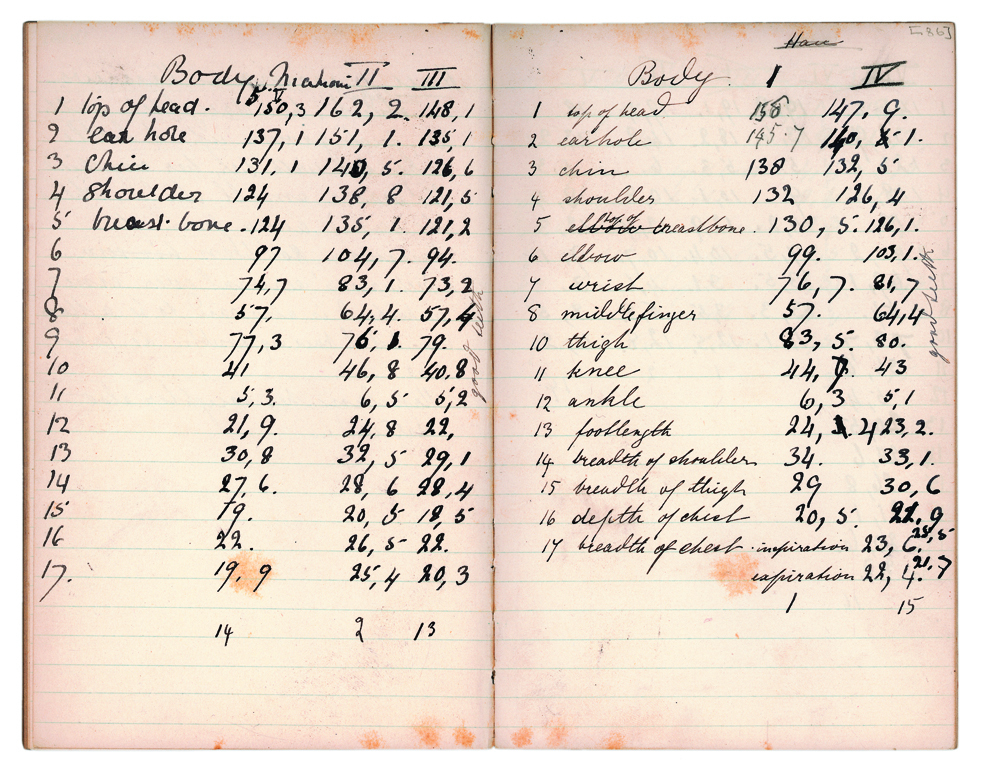 Body II III
1 top of head. 150,3 162, 2. 148, 1
2 ear hole 137, 1 151, 1. 135, 1
3 Chin 131, 1 140, 5. 126, 6
4 Shoulder 124 138, 8 121, 5
5 breast bone. 124 135, 1. 121, 2
6 97 104, 7. 94.
7 74,7 83, 1. 73, 2
8 57, 64, 4. 57, 4
9 77, 3 76, 79.
10 41 46, 8 40, 8
11 5, 3. 6, 5 5, 2
12 21, 9. 24, 8 22,
13 30, 8 32, 5 29, 1
14 27, 6. 28, 6 28, 4
15 19. 20, 5 18, 5
16 22. 26, 5 22.
17. 19, 9 25, 4 20, 3
14 2 13
good teeth
[86]
Body. I IV
1 top of head 158 147, 9.
2 earhole 145.7 140, 1.
3 chin 138 132, 5
4 shoulder 132 126, 4
5 elbow top of breastbone. 130, 5. 126, 1.
6 elbow 99. 103, 1.
7 wrist 76, 7. 81, 7
8 middlefinger 57. 64, 4
10 thigh 83, 5. 80.
11 knee 44, 43
12 ankle 6, 3 5, 1
13 footlength 24, 4 23, 2.
14 breadth of shoulders 34. 33, 1.
15 breadth of thigh 29 30, 6
16 depth of chest 20, 5. 22, 9
17 breadth of chest. inspiration 23, 6. 25, 5
expiration 22, 4. 21, 7
1 15
good teeth